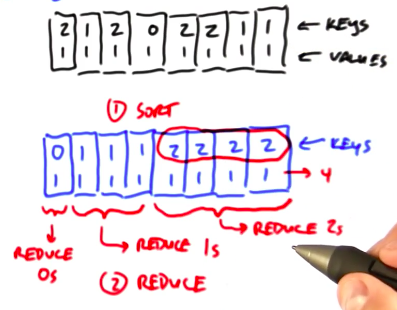 2 1 2 0 2 2 1 1 ← KEYS
1 1 1 1 1 1 1 1 ← VALUES
① SORT
0 1 1 1 2 2 2 2 ← KEYS
1 1 1 1 1 1 1 1 → 4
REDUCE 0s
REDUCE 1s
REDUCE 2s
② REDUCE